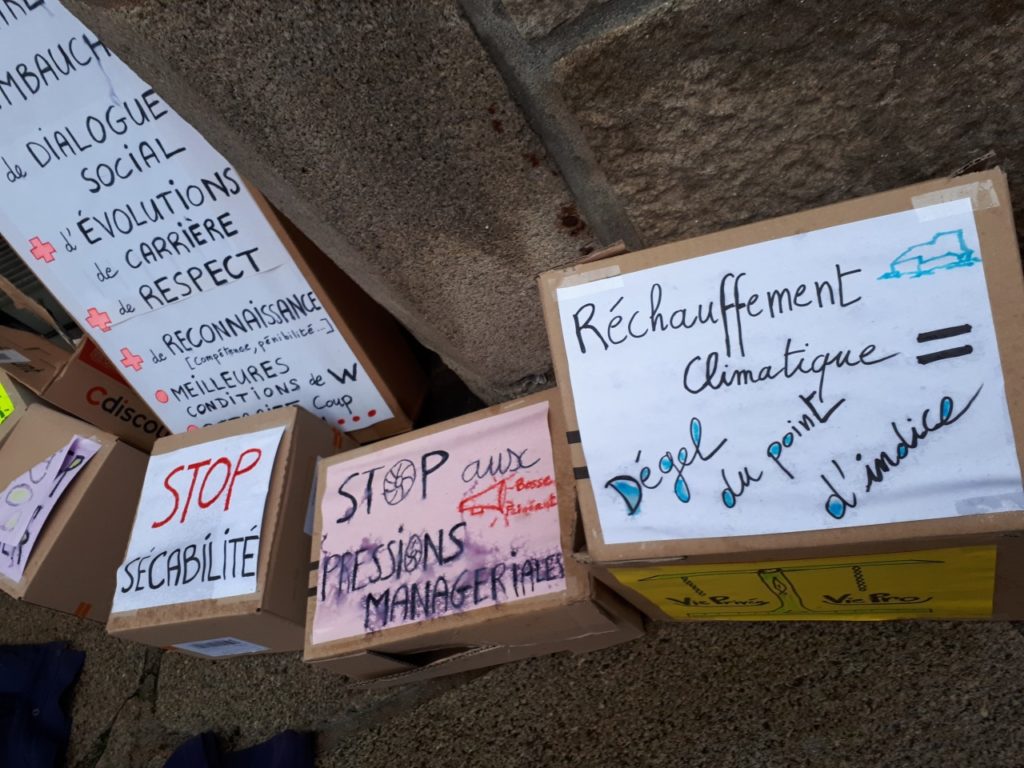 de DIALOGUE
SOCIAL
d'ÉVOLUTIONS
de CARRIÈRE
de RESPECT
de RECONNAISSANCE
[Compétence, pénibilité...]
MEILLEURES
CONDITIONS de W
Coup...
Cdiscou
STOP
SÉCABILITÉ
STOP aux
PRESSIONS
MANAGERIALES
Réchauffement
Climatique =
Dégel
du point
d'indice
Vie Privée
Vie Pro